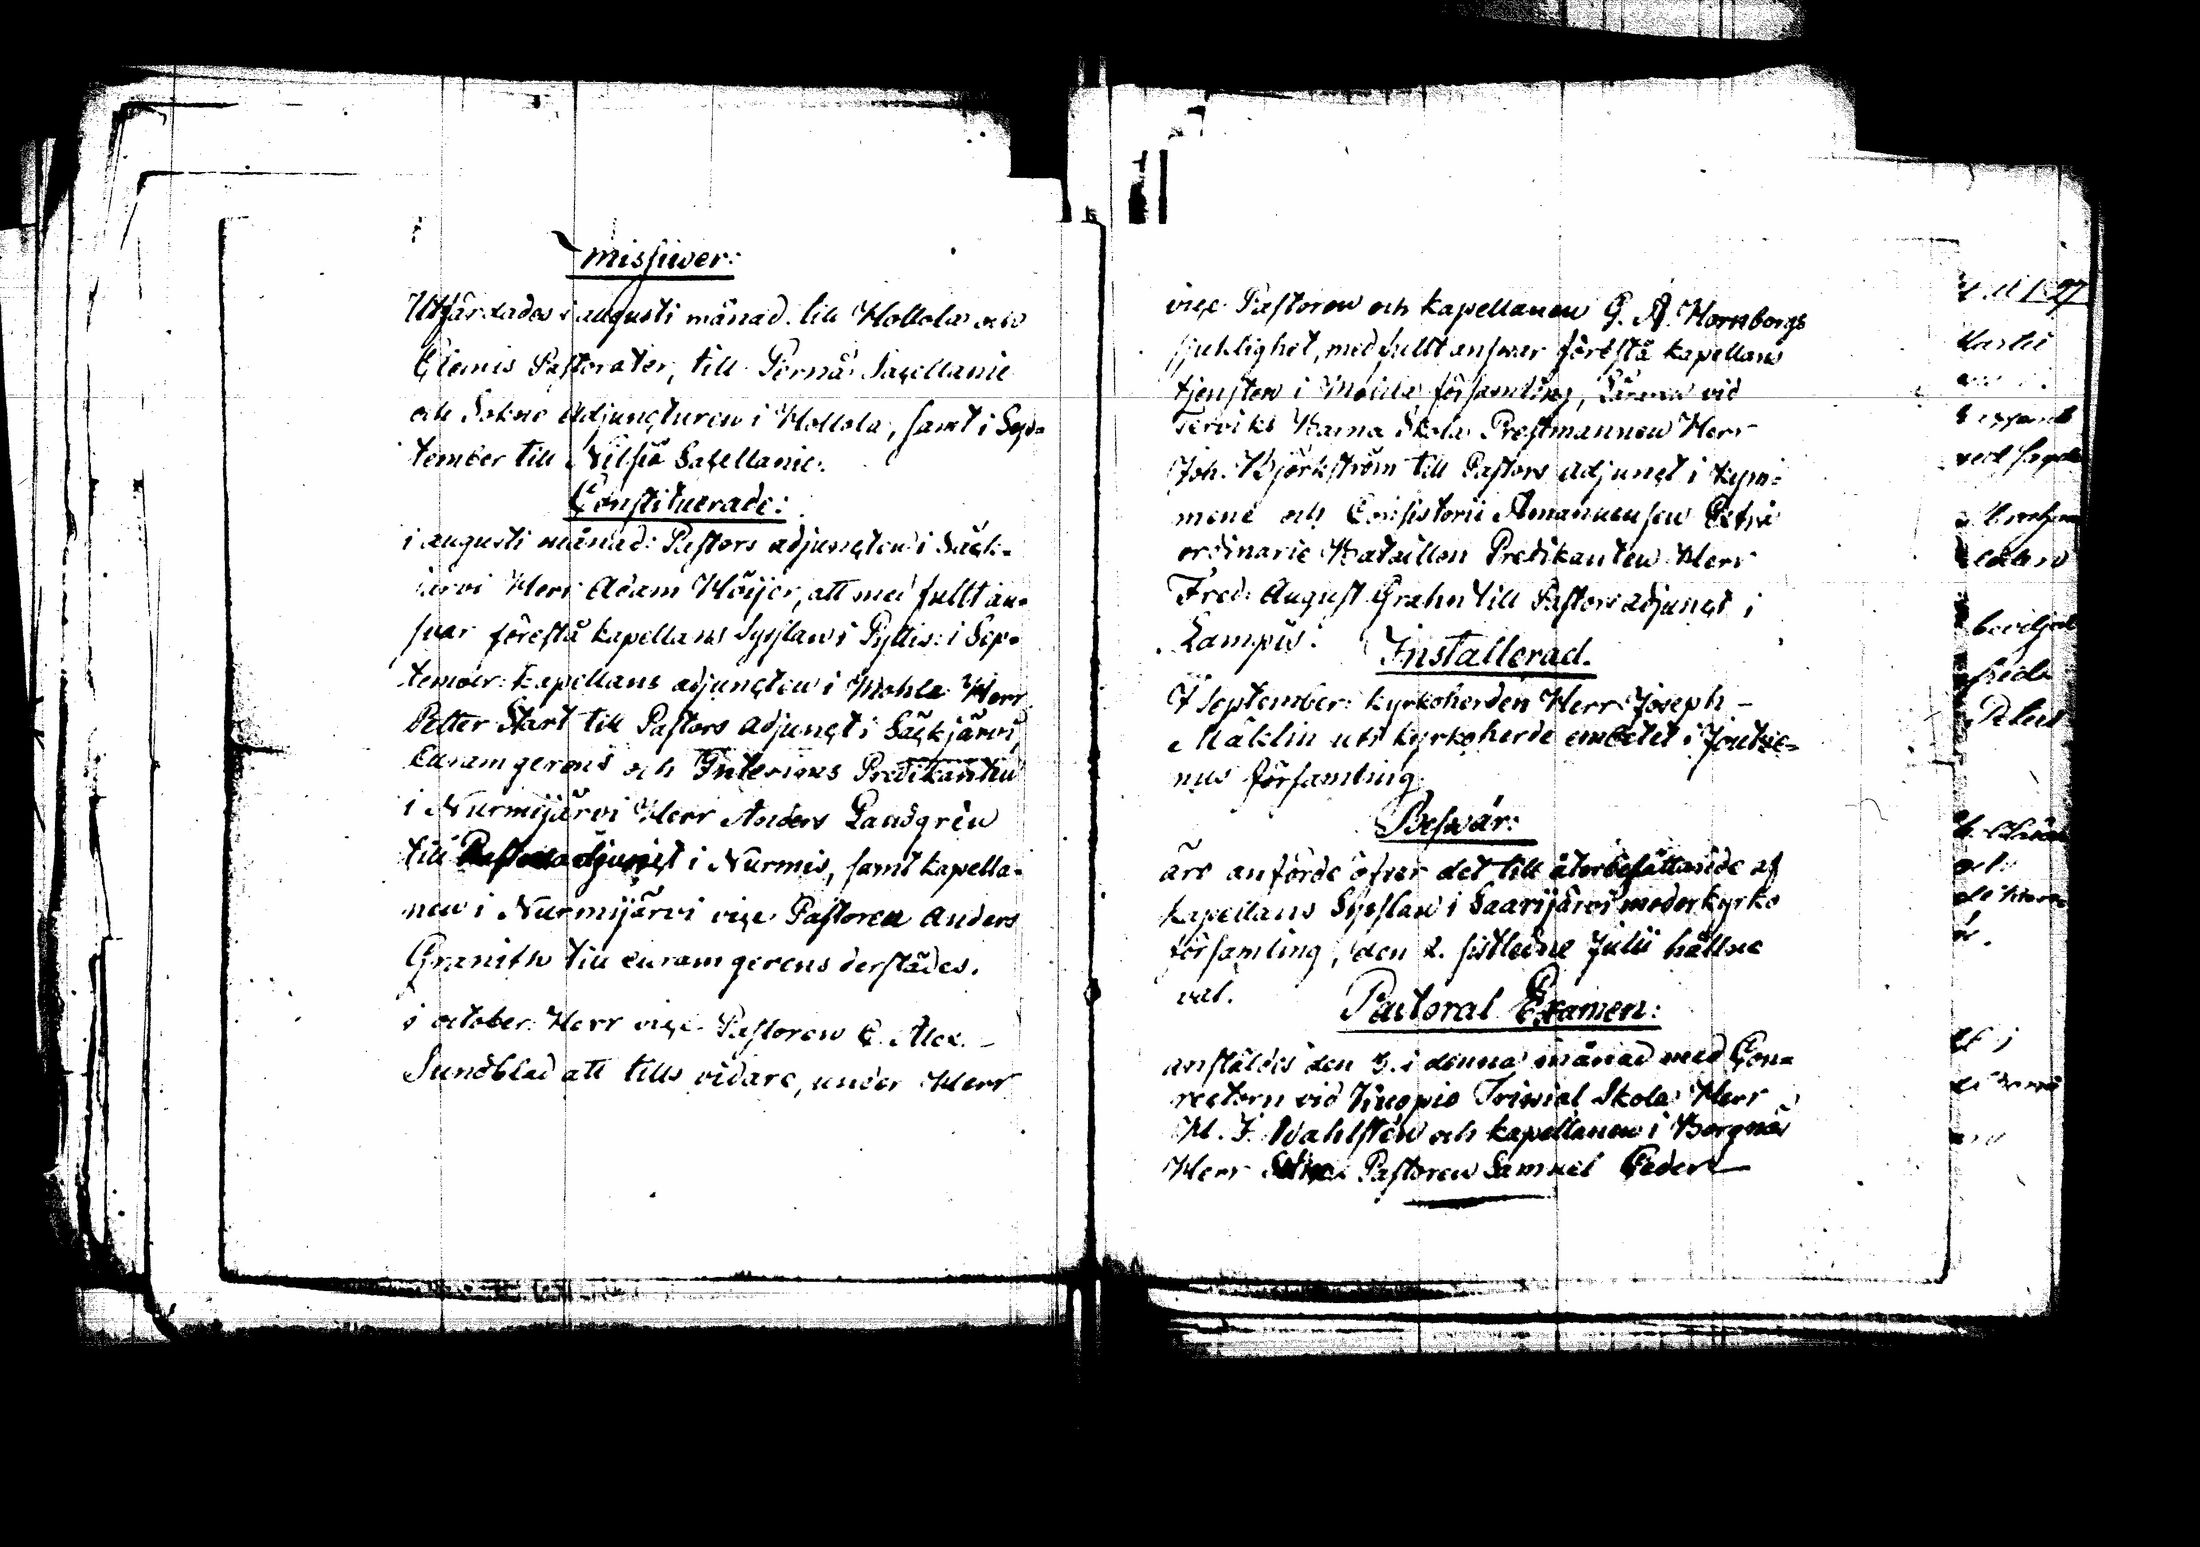 Missiver:
Utfärdades i augusti månad till Hollola och
Eiemis Pastorater, till Pernå Sacellanie
och Sokne Adjuncturen i Hollola, samt i Sep-
tember till Nilsiä Sacellanie.
Constituerade:
i augusti månad: Pastors adjuncten i Säck-
järvi Herr Adam Höijer, att med fullt an-
svar förestå kapellans Sysslan i Pyttis: i Sep-
tember: kapellans adjuncten i Mohla Herr
Petter Start till Pastors adjunct i Säckjärvi,
Curam gerens och Interims Predikanten
i Nurmijärvi Herr Anders Landgrén
till Pastors adjunct i Nurmis, samt kapella-
nen i Nurmijärvi vice Pastoren Anders
Granith till curam gerens derstädes.
i october: Herr vice Pastoren C. Alex. -
Sundblad att tills vidare, under Herr
vice Pastoren och kapellanen G. A. Hornborgs
sjuklighet, med fullt answar förestå kapellans
tjensten i Mohla församling, Läraren vid
Terviks Barna Skola Prestmannen Herr
Joh. Björkström till Pastors adjunct i Kym-
mene och Consistorii Amanuensen Extra
ordinarie Bataillon Predikanten Herr
Fred. August Grahn till Pastors adjunct i
Lampis.
Installerad.
I September: kyrkoherden Herr Joseph -
Mäklin uti kyrkoherde embetet i Joutse-
nus församling.
Beswär:
äro anförde öfver det till återbesättande af
kapellans Sysslan i Saarijärvi moderkyrko
församling, den 2. sistledne Julii hållne
val.
Pastoral Examen:
anstäldes den 3. i denna månad med Con-
rectorn vid Kuopio Trivial Skola Herr
M. J. Wahlstén och kapellanen i Borgnäs
Herr Pastoren Samuel Ceder